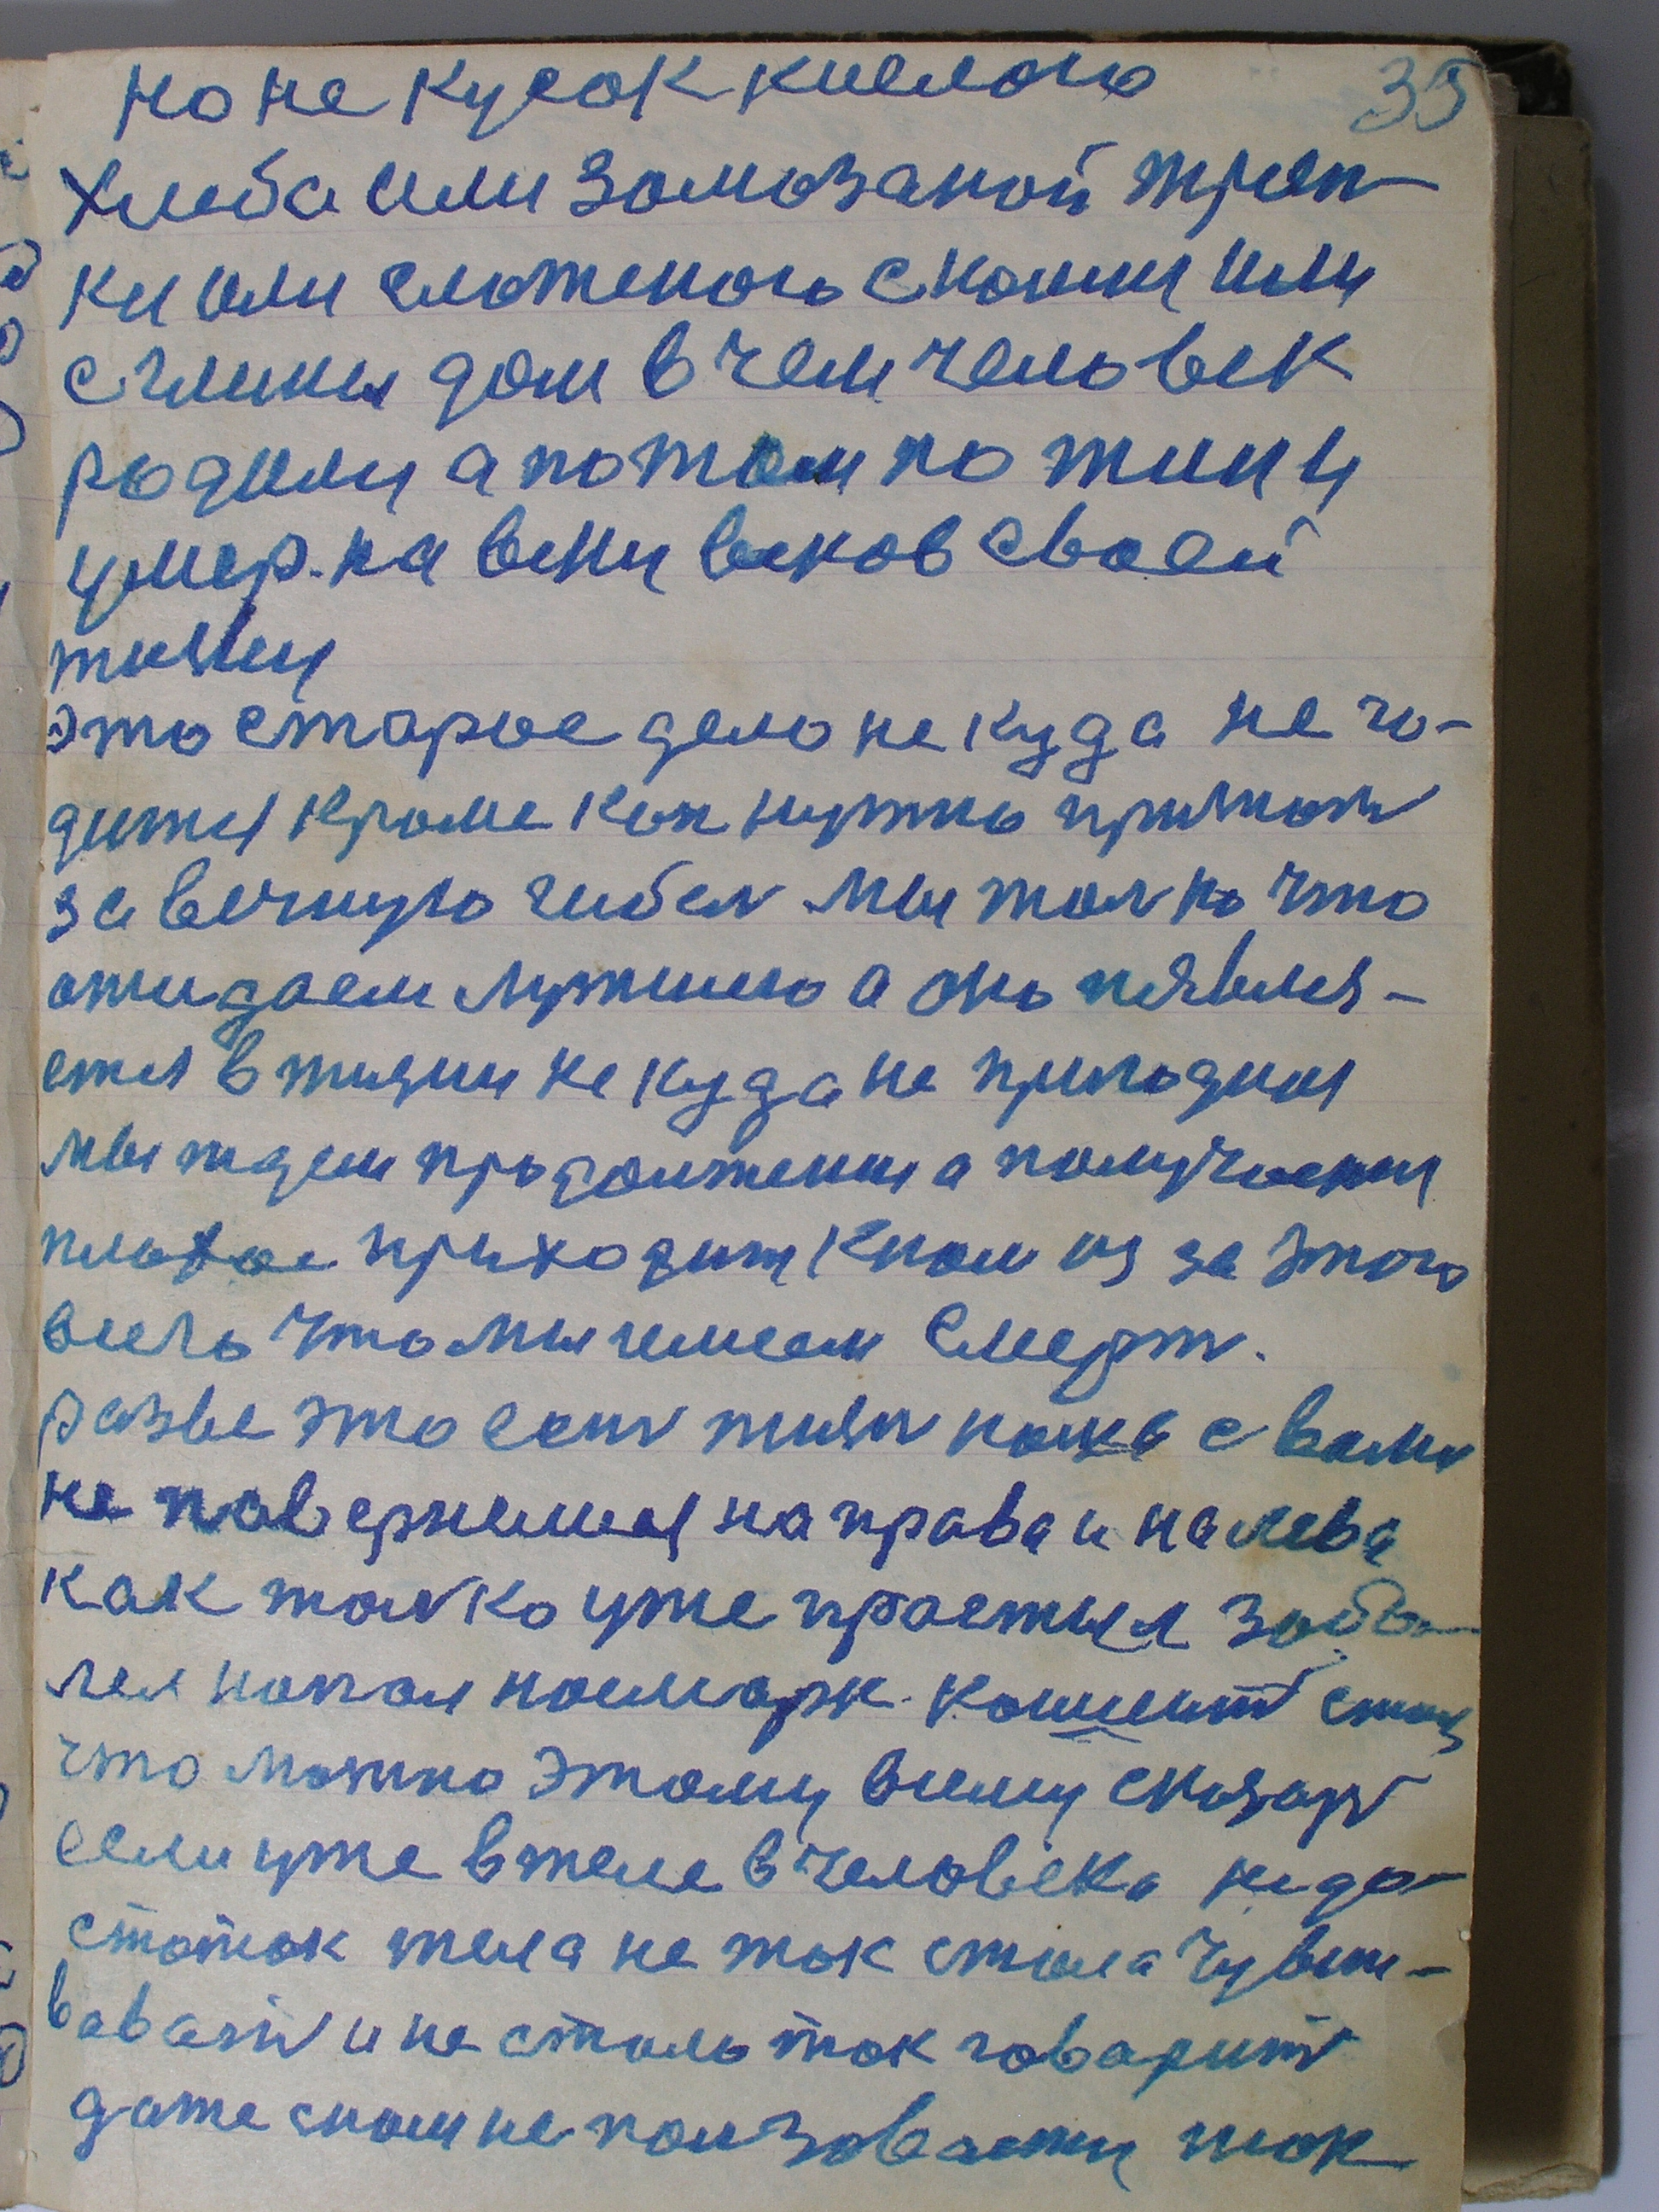 35
но не кусок кислого
хлеба или замозаной тряп-
ки или сложеного с камня или
с глины дом в чем человек
родили а потом по жили и
умер. на веки веков своей
жизни
это старое дело не куда не го-
дится кроме как нужно признат
за вечную гибел мы толко что
ожидаем лучшего а оно появля-
ется в жизни не куда не пригодная
мы ждем продолжения а получаем
плохое приходит к нам из за этого
всего что мы имеем смерт.
разве это ест жизн
не повернемся на права и на лева
как толко уже простыл забо-
лел напал насморк. кашлит стал
что можно этому всему сказат
если уже в теле в человека недо-
статок тела не так стала чувст-
вават и не стало так говарит
даже сном не ползоватся так